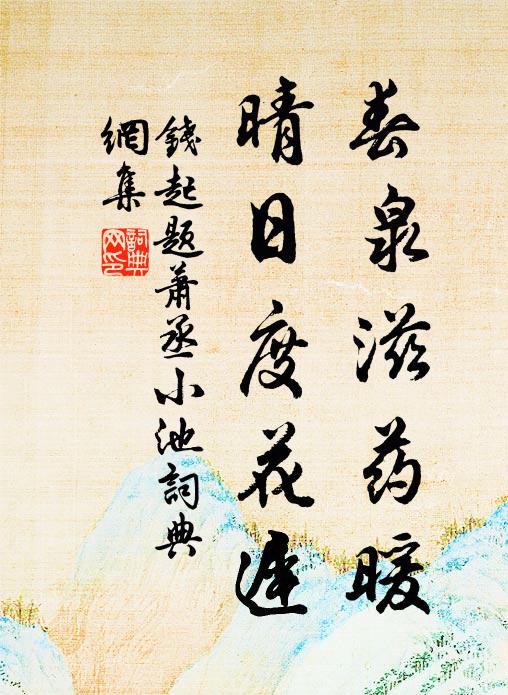 春泉滋药暖
晴日度花遲
錢起題蕭丞小池詞典
網集
詞典
网印